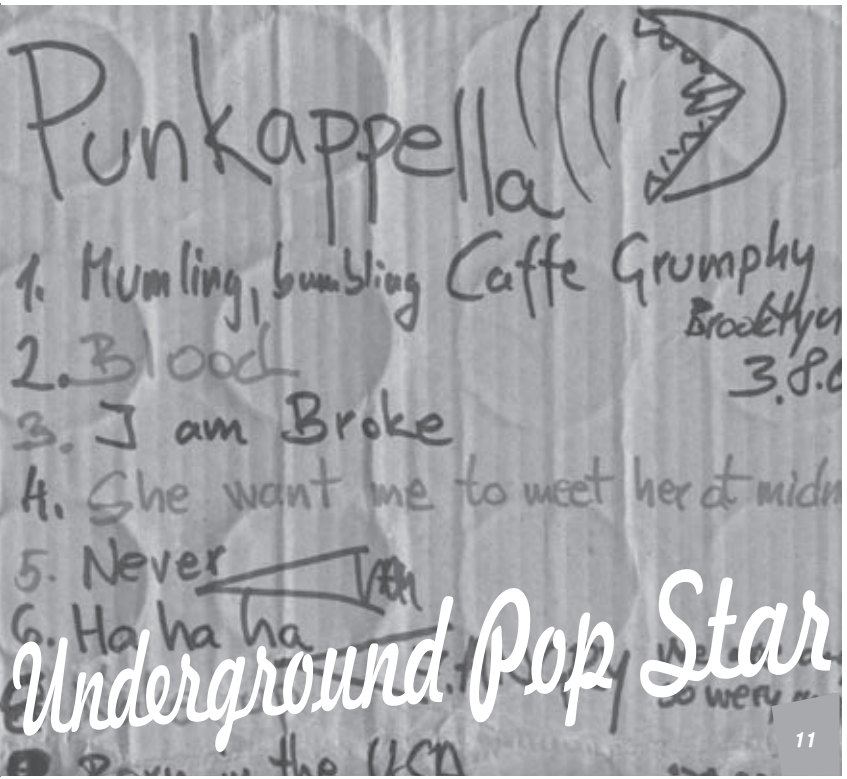 Punkappella
1. Mumling, bumbling Caffe Grumphy
Brooklyn
3.8.0
2. Blood
3. I am Broke
4. She want me to meet her at midn
5. Never
6. Ha ha ha
Underground Pop Star
so wery
Born in the USA
11